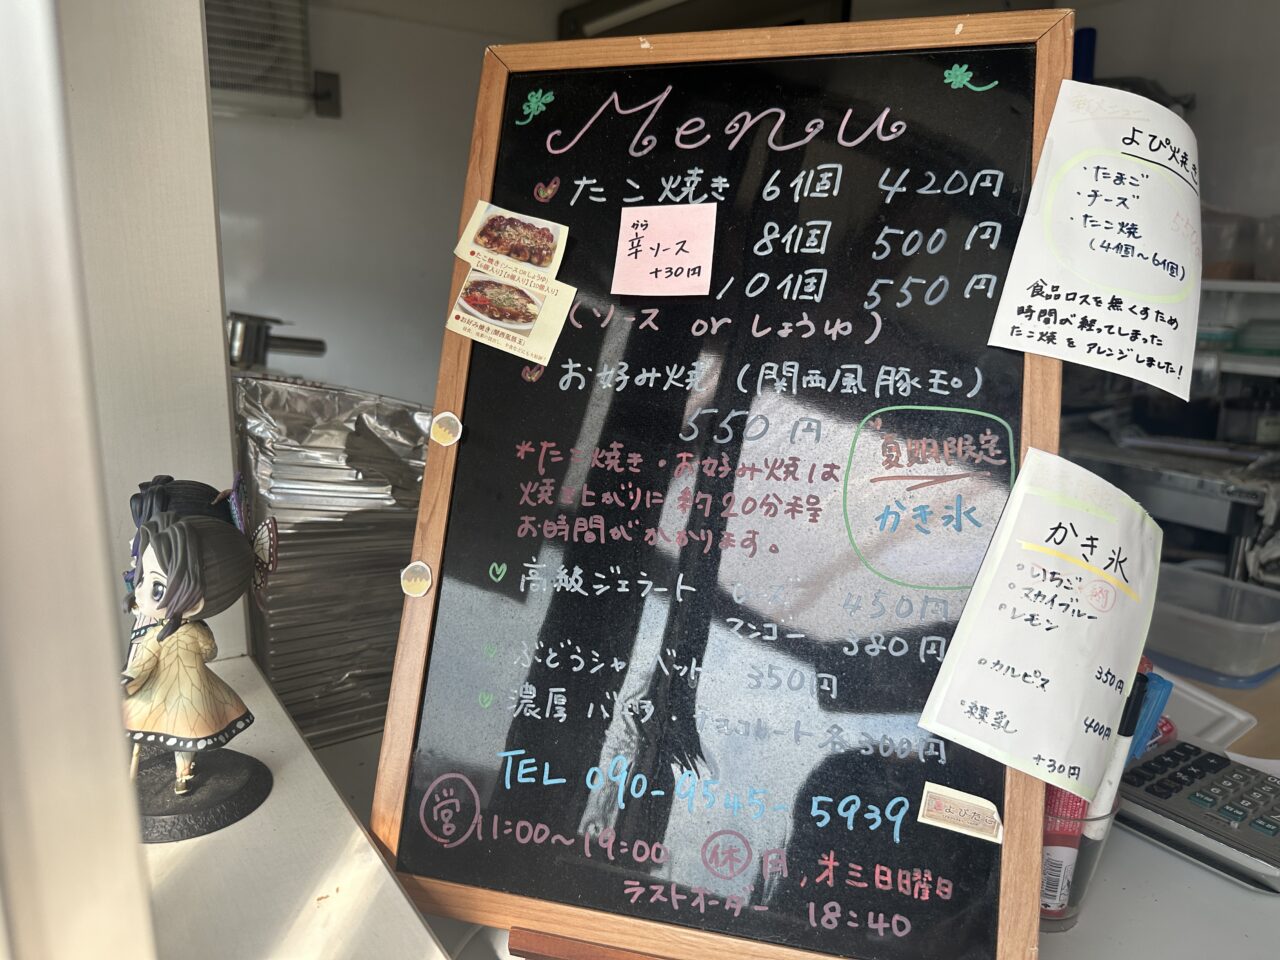 Menu
たこ焼き 6個 420円
8個 500円
10個 550円
から
辛ソース
+30円
(ソース or しょうゆ)
お好み焼 (関西風豚玉)
550円
*たこ焼き・お好み焼は
焼き上がりに約20分程
お時間がかかります。
夏期限定
かき氷
高級ジェラート 450円
マンゴー 380円
ぶどうシャーベット 350円
濃厚バニラ・チョコレート各300円
TEL 090-9545-5939
営 11:00~19:00 休 月,才三日曜日
ラストオーダー 18:40
●たこ焼き(ソースORしょうゆ)
【6個入り】【8個入り】【10個入り】
●お好み焼き(関西風豚玉)
よぴ焼き
・たまご
・チーズ
・たこ焼
(4個~6個)
食品ロスを無くすため
時間が経ってしまった
たこ焼をアレンジしました!
かき氷
いちご
スカイブルー
レモン
カルピス 350円
練乳 400円
+30円